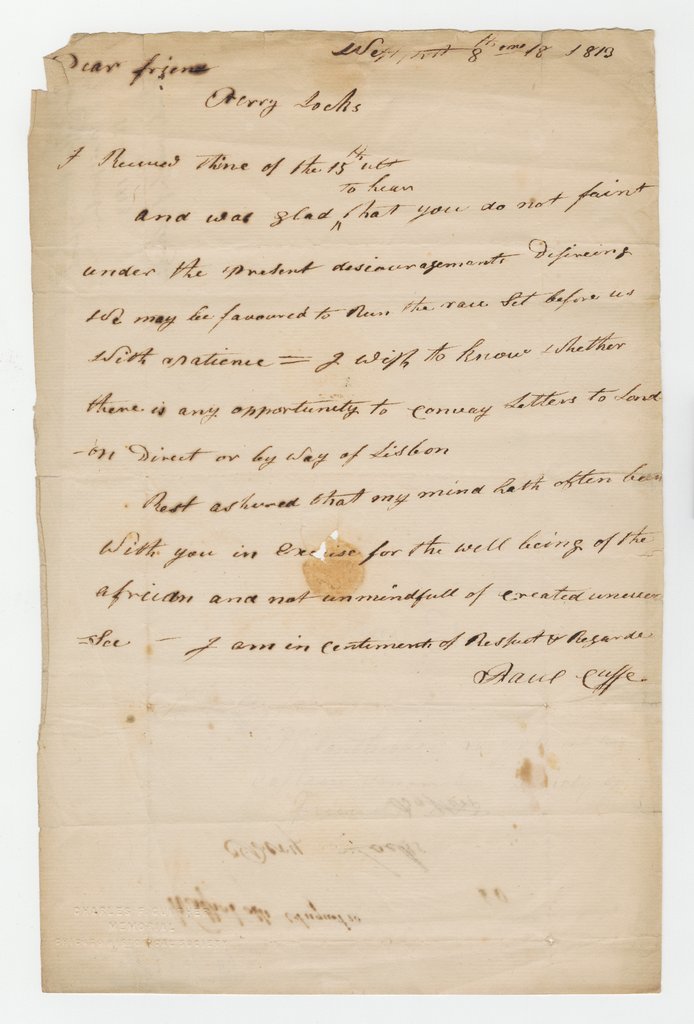 Westport 8th mo 18 1813
Dear friend
Perry Locks
I Received thine of the 15th ult
to hear
and was glad ^ that you do not faint
under the present descouragements Desireing
We may be favoured to Run the race Set before us
With patience = I wish to know whether
there is any opportunity to Convay Letters to Lond
-on Direct or by way of Lisbon
Rest ashured that my mind hath often been
With you in Exercise for the well being of the
african and not unmindfull of created univer
=See — I am in Centiments of Respect & Regarde
Paul Cuffe
Perry Locks
CHARLES F. GUNTHER
MEMORIAL
CHICAGO HISTORICAL SOCIETY